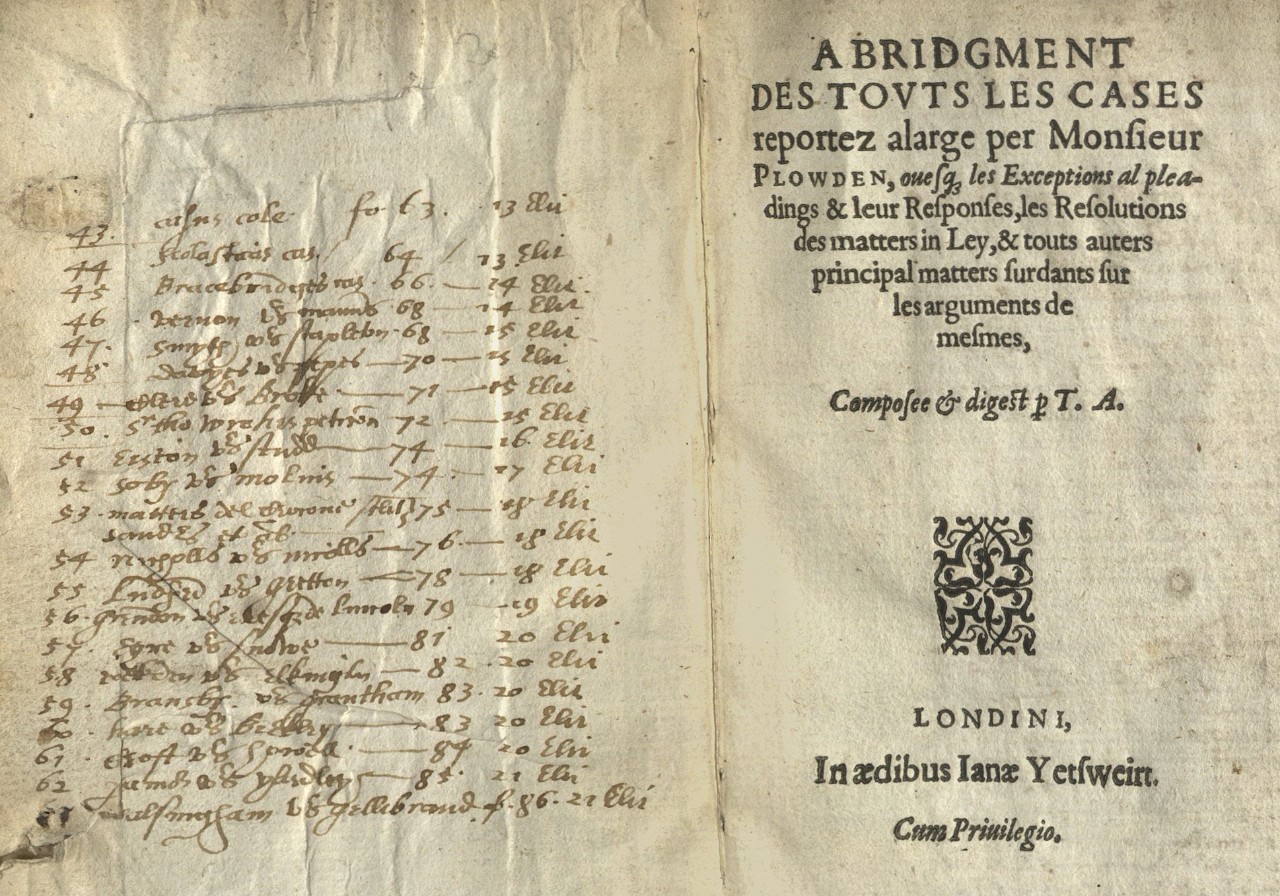 43. casus cole fo 63. 13 Eliz
44 Scolasticas cas. 64 / 13 Eliz
45 Bracebridges cas. 66. — 14 Eliz.
46 vernon vs manns 68 — 14 Eliz
47. Smyth vs stapleton. 68 — 15 Eliz
48 vs — 70 — 15 Eliz
49 — vs — 71 — 15 Eliz
50. Sr tho wroths peticon 72 — 15 Eliz
51 Eyston vs studd — 74 — 16. Eliz
52 Soby vs molins — 74. — 17 Eliz
53. matters del Corone 75 — 18 Eliz
54 Nycholls vs nicolls — 76. — 18 Eliz
55 vs Gretton — 78 — 18 Eliz
56. Grendon vs Evesq de Lincoln 79 — 19 Eliz
57. Eyre vs Snowe — 81 20 Eliz
58 vs Elkington — 82. 20 Eliz
59. Bransby. vs Grantham 83. 20 Eliz
60. hare vs Bickley — 83 20 Eliz
61 Croft vs howell — 84 20 Eliz
62 vs yardley — 85. 21 Eliz
walsingham vs Gellibrand. f. 86. 21 Eliz
ABRIDGMENT
DES TOVTS LES CASES
reportez alarge per Monſieur
PLOWDEN, oueſqꝫ les Exceptions al plea-
dings & leur Reſponſes, les Reſolutions
des matters in Ley, & touts auters
principal matters ſurdants ſur
les arguments de
meſmes,
Compoſee & digeſt ꝑ T. A.
LONDINI,
In ædibus Ianæ Yetſweirt.
Cum Priuilegio.